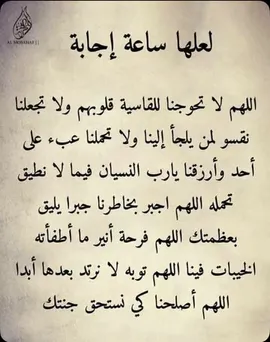 لعلها ساعة إجابة
اللهم لا تحوجنا للقاسية قلوبهم ولا تجعلنا
نقسو لمن يلجأ إلينا ولا تحملنا عبء على
أحد وأرزقنا يارب النسيان فيما لا نطيق
تحمله اللهم اجبر بخاطرنا جبرا يليق
بعظمتك اللهم فرحة أنير ما أطفأته
الخيبات فينا اللهم توبه لا نرتد بعدها أبدا
اللهم أصلحنا كي نستحق جنتك